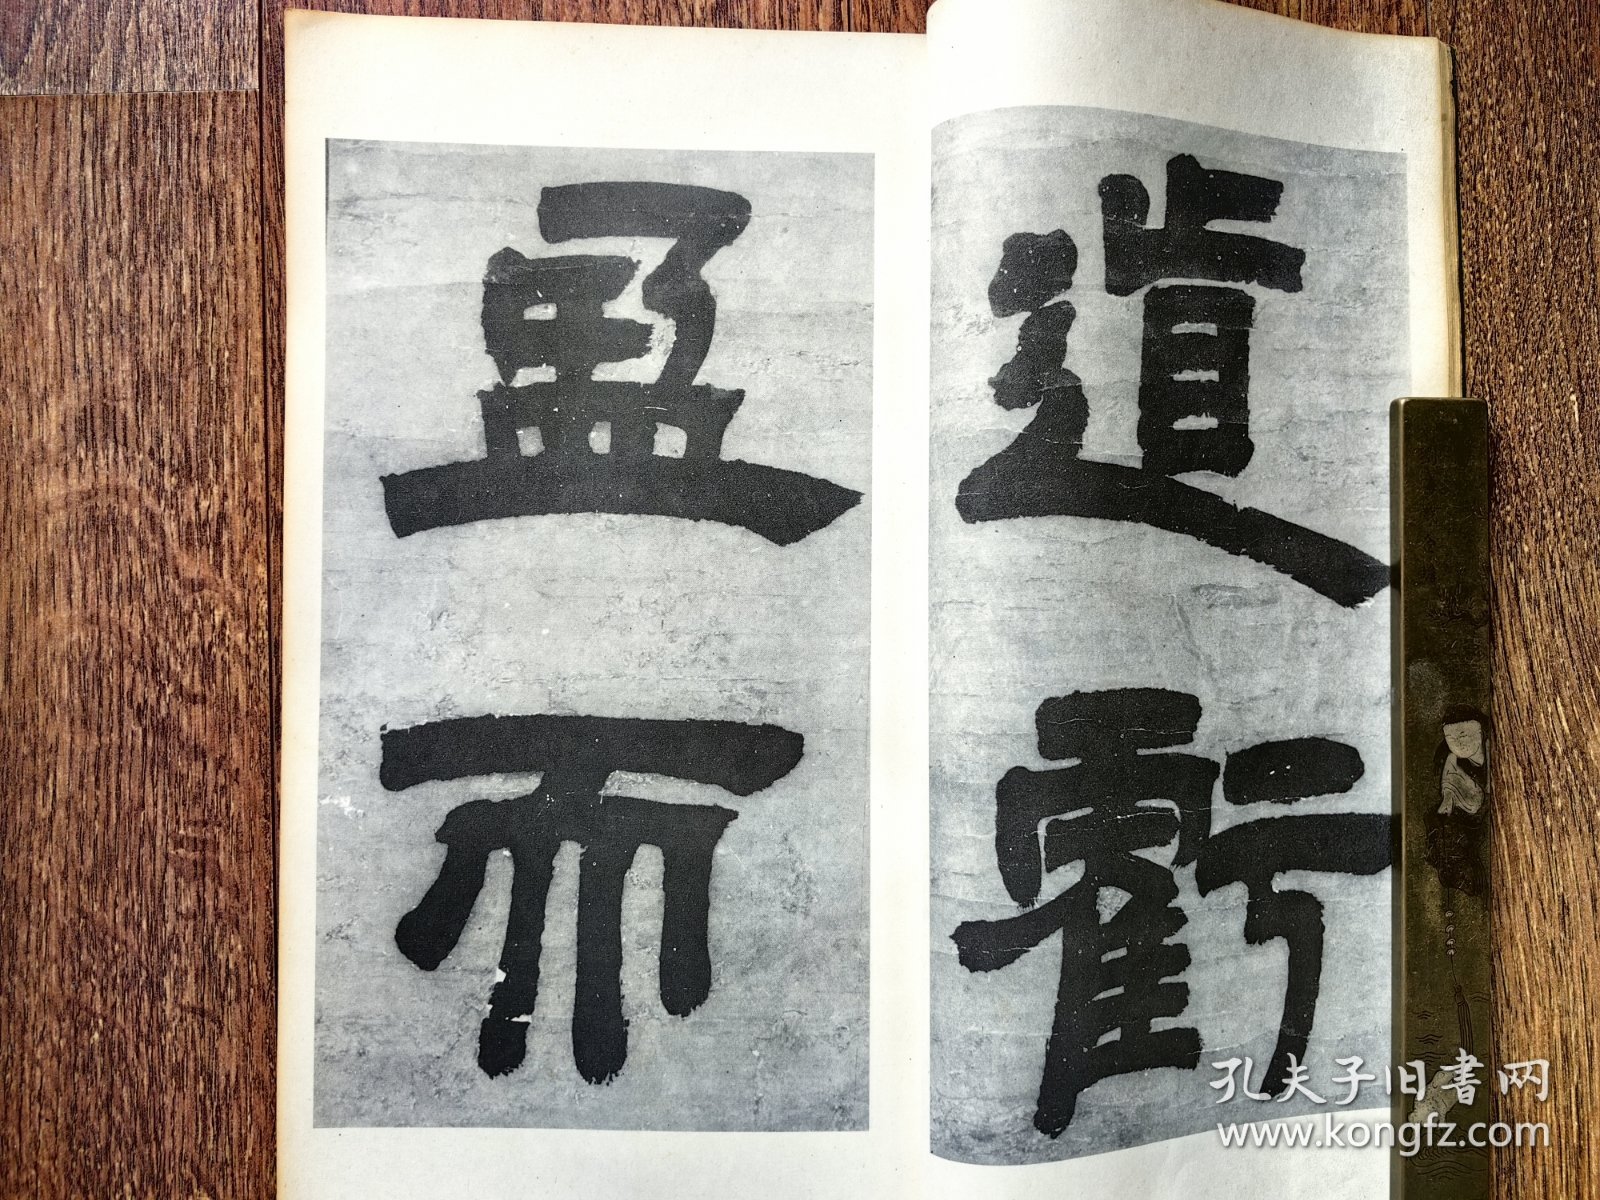 道虧
盈而
孔夫子旧书网
www.kongfz.com